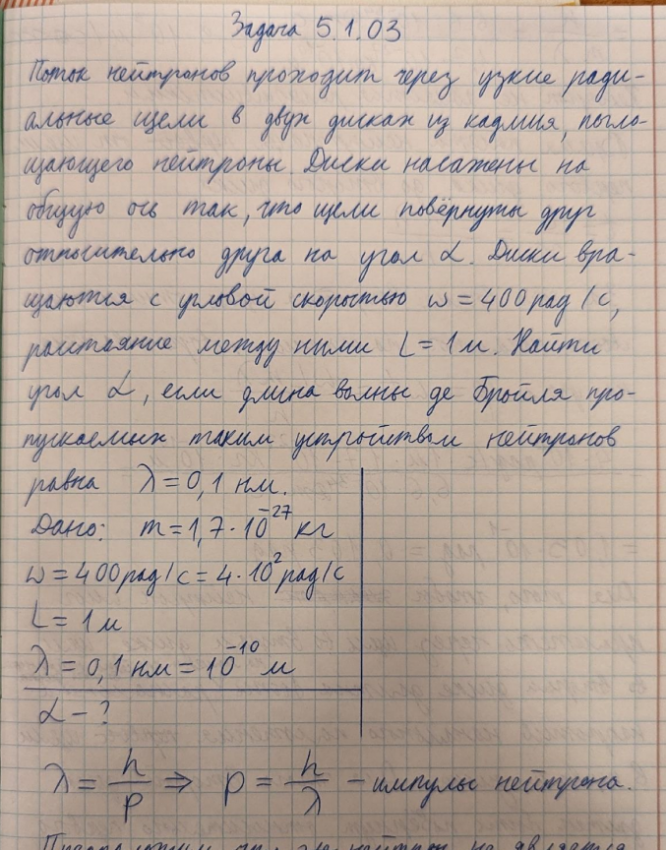 Задача 5.1.03
Поток нейтронов проходит через узкие ради-
альные щели в двух дисках из кадмия, погло-
щающего нейтроны. Диски насажены на
общую ось так, что щели повёрнуты друг
относительно друга на угол α. Диски вра-
щаются с угловой скоростью ω = 400 рад/с,
расстояние между ними L = 1 м. Найти
угол α, если длина волны де Бройля про-
пускаемых таким устройством нейтронов
равна λ = 0,1 нм.
Дано: m = 1,7·10⁻²⁷ кг
ω = 400 рад/с = 4·10² рад/с
L = 1 м
λ = 0,1 нм = 10⁻¹⁰ м
α - ?
λ = h/p ⇒ p = h/λ – импульс нейтрона.